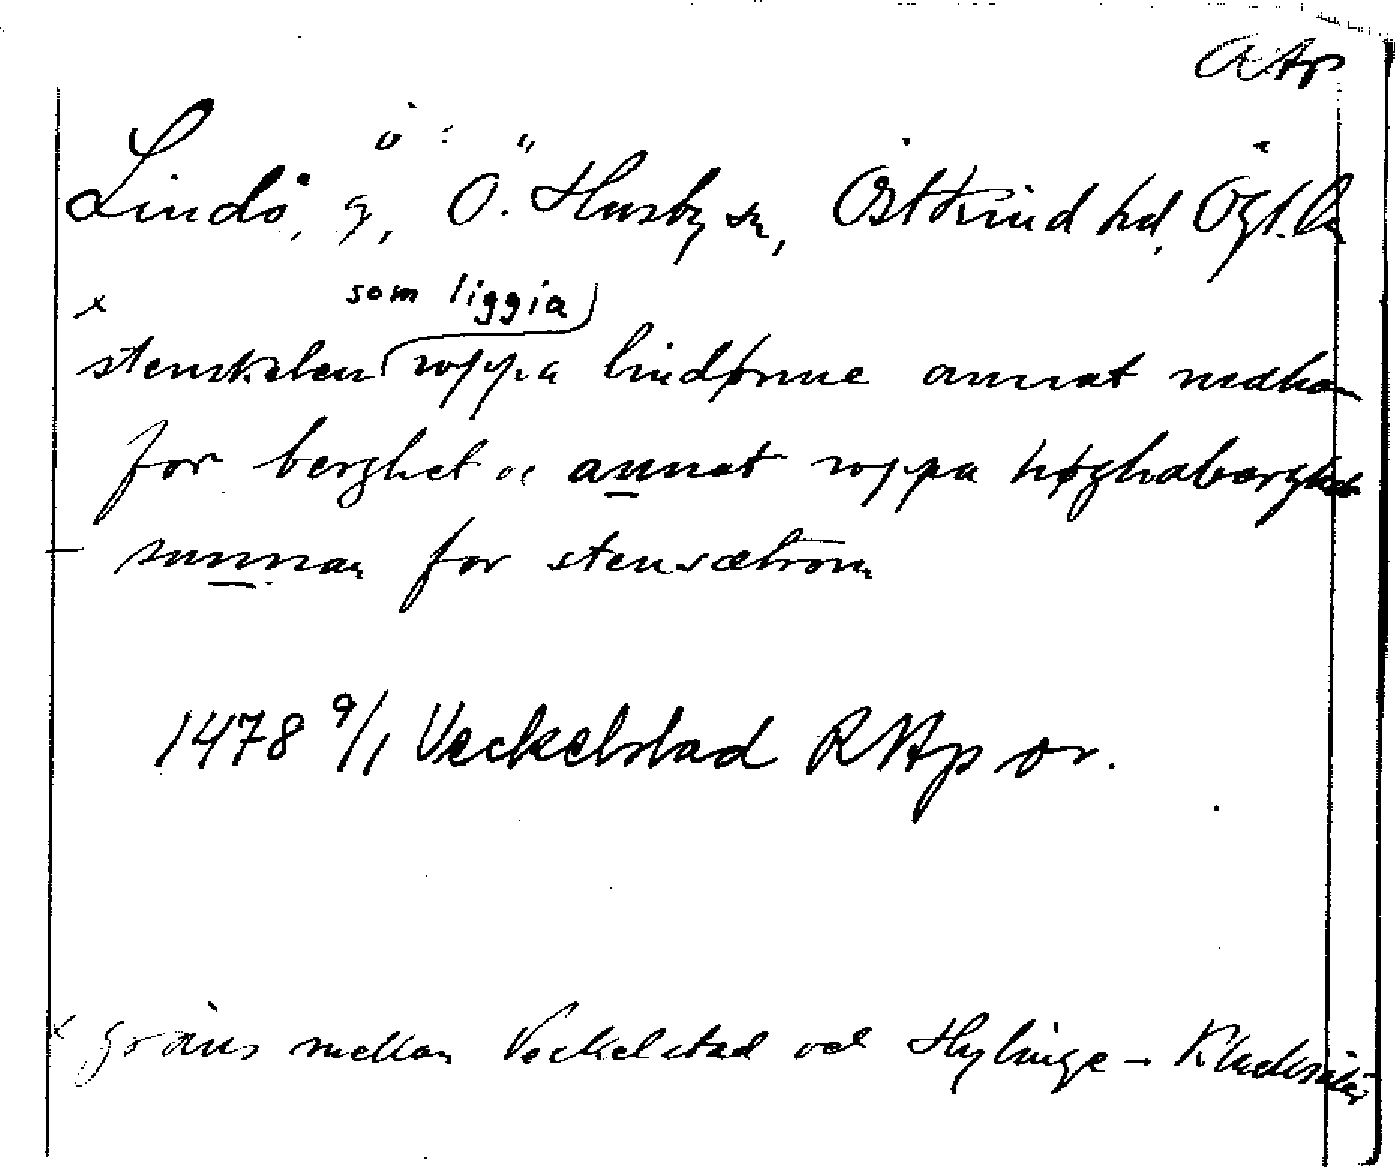 Lindö, g, Ö. Husby sn, Östkind hd, Ögl.
som liggia
x stenskelen wppa lindønne annat nædhan
for berghet oc annat wppa høghaberghet
sunnan for stensætrom
1478 9/1 Veckelstad RAp or.
x gräns mellan Veckelstad och Hylinge –